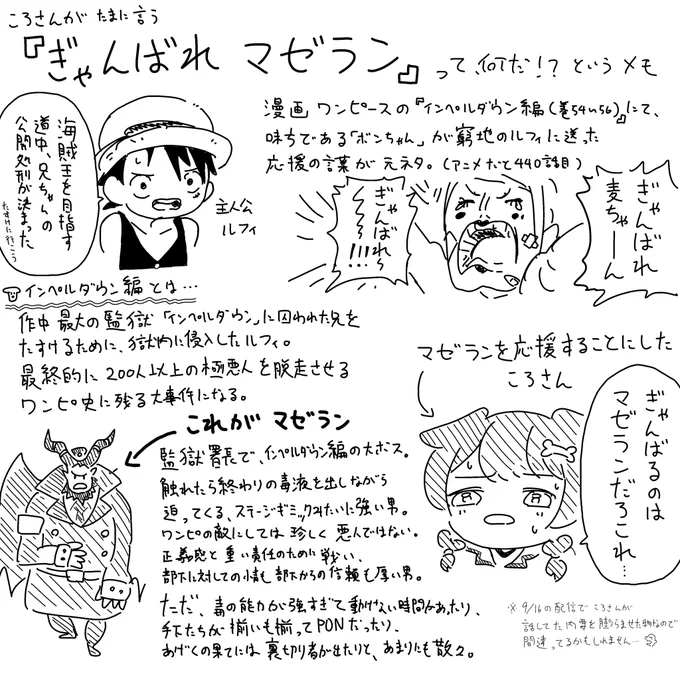 ころさんが たまに言う
『ぎゃんばれ マゼラン』って、何だ!? というメモ
海賊王を目指す
道中、兄ちゃんの
公開処刑が決まった
たすけに行こう
主人公
ルフィ
漫画 ワンピースの『インペルダウン編(巻54〜56)』にて、
味方である「ボンちゃん」が窮地のルフィに送った
応援の言葉が元ネタ。(アニメだと440話目)
ぎゃんばれ
麦ちゃーん
ぎゃんばれ〜
〜〜!!!
インペルダウン編とは…
作中最大の監獄「インペルダウン」に囚われた兄を
たすけるために、獄内に侵入したルフィ。
最終的に200人以上の極悪人を脱走させる
ワンピ史に残る大事件になる。
マゼランを応援することにした
ころさん
ぎゃんばるのは
マゼランだろこれ…
これが マゼラン
監獄署長で、インペルダウン編の大ボス。
触れたら終わりの毒液を出しながら
迫ってくる、ステージギミックみたいに強い男。
ワンピの敵にしては珍しく悪人ではない。
正義感と重い責任のために戦い、
部下に対しての情も部下からの信頼も厚い男。
ただ、毒の能力が強すぎて動けない時間があったり、
手下たちが揃いも揃ってPONだったり、
あげくの果てには裏切り者が出たりと、あまりにも散々。
※ 9/16の配信でころさんが
話してた内容を膨らませた物なので
間違ってるかもしれません…